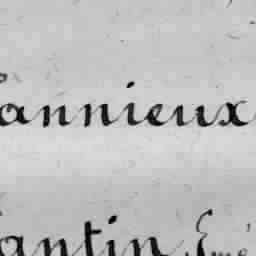 annieux
antin Emé